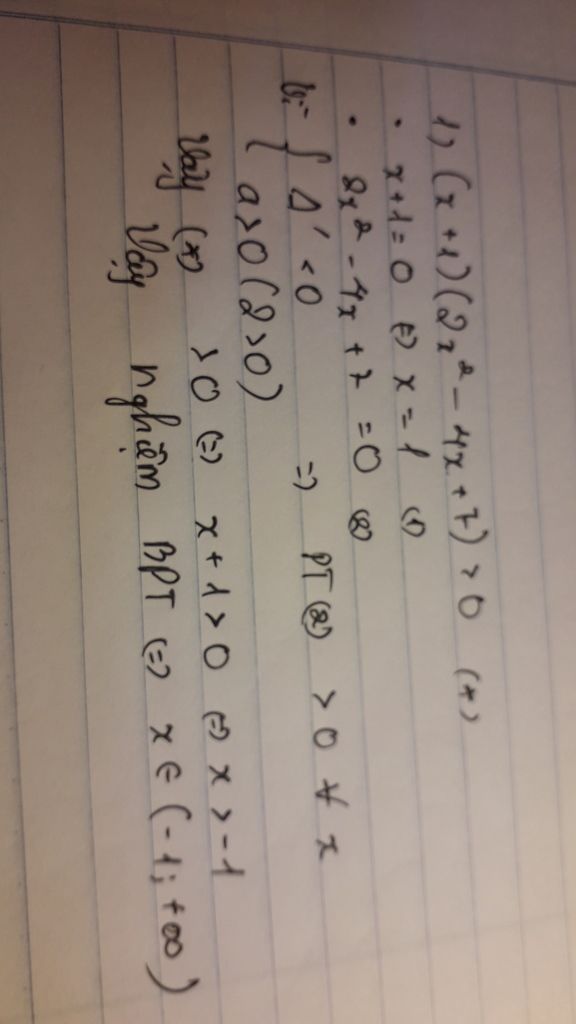 1) (x+1)(2x² - 4x + 7) > 0 (*)
• x+1 = 0 ⇔ x = 1 (1)
• 2x² - 4x + 7 = 0 (2)
Vì { Δ' < 0
a > 0 (2 > 0) ⇒ PT (2) > 0 ∀ x
Vậy (*) > 0 ⇔ x + 1 > 0 ⇔ x > -1
Vậy nghiệm BPT ⇔ x ∈ (-1; +∞)